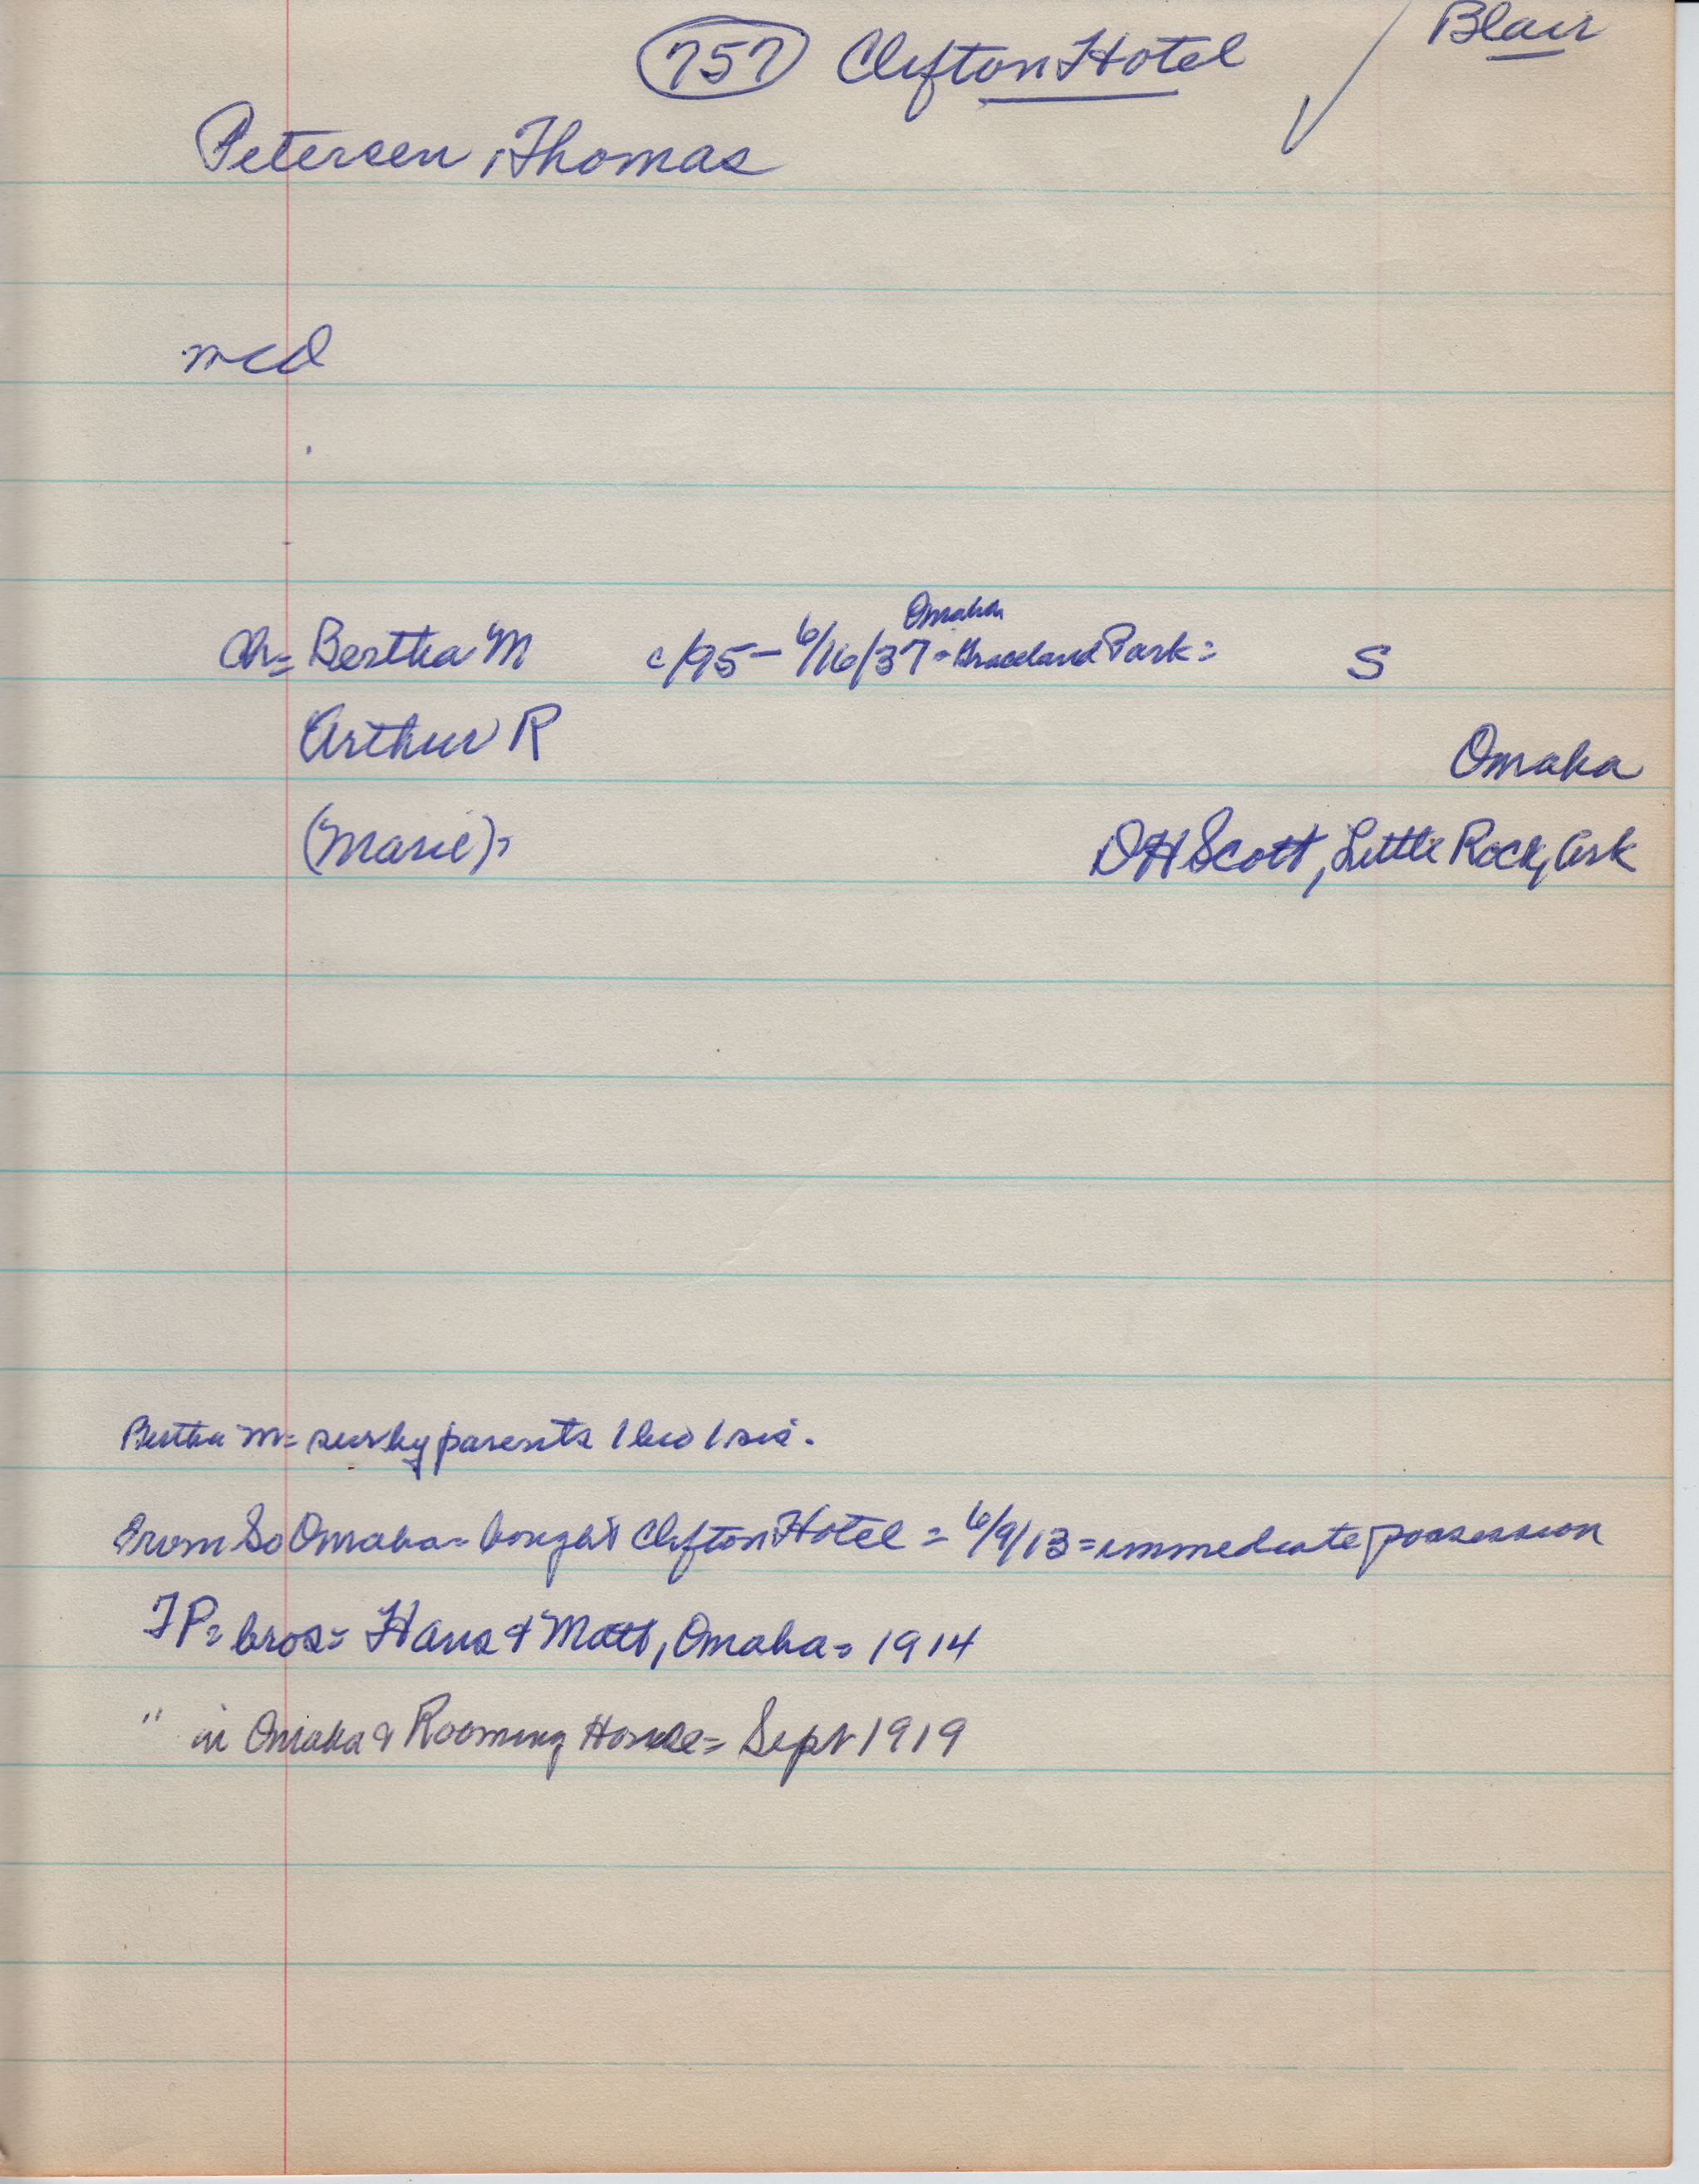 757 Clifton Hotel
Blair
Petersen, Thomas
mcd
Ch= Bertha M c/95 - 6/16/37 = Graceland Park = S
Omaha
Arthur R Omaha
(Marie)= D H Scott, Little Rock, Ark
Bertha M= sur by parents 1 bro 1 sis.
From So Omaha = bought Clifton Hotel = 6/9/13 = immediate possession
TP= bros= Hans & Matt, Omaha = 1914
" in Omaha & Rooming House = Sept 1919